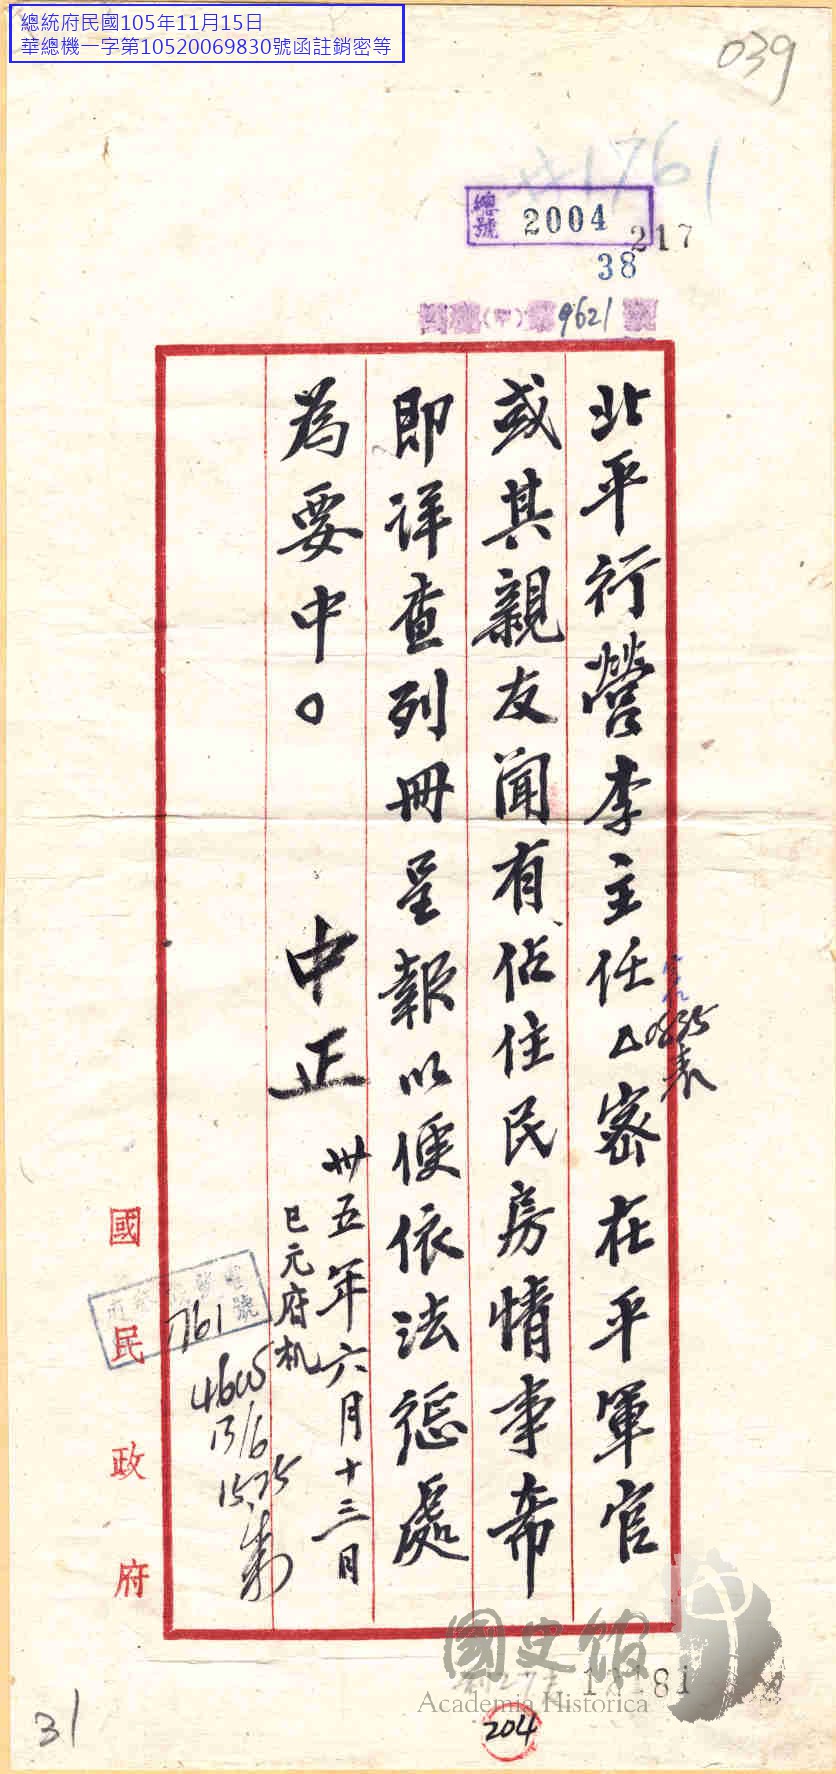 總統府民國105年11月15日
華總機一字第10520069830號函註銷密等
039
1761
總號 2004
217
38
9621
北平行營李主任△密在平軍官
或其親友聞有佔住民房情事希
即詳查列冊呈報以便依法懲處
為要中。
中正
卅五年六月十三日
巳元府机
0835
國民政府
號
1761
4605
13/6
1575
國史館
Academia Historica
18181
204
31